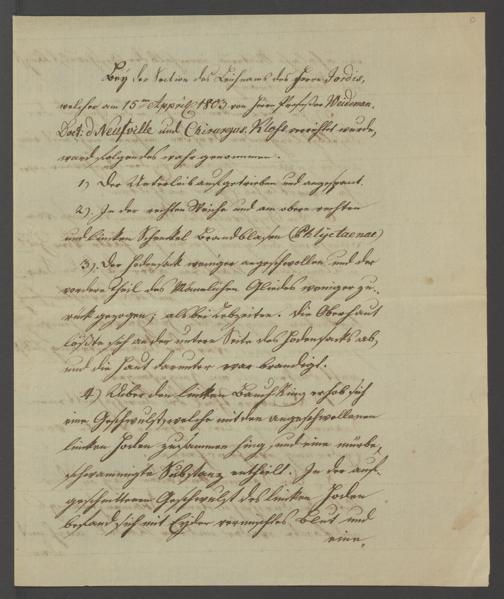 Bey der Section des Leichnams des Herrn Jordis,
welcher am 15ten Appril 1803 von Herrn Professor Weideman,
Doct: d Neufville und Chirurgus Kloß verrichtet wurde,
ward folgendes wahrgenommen.
1) Der Unterleib aufgetrieben und angespant.
2) In der rechten Weiche und am obern rechten
und linken Schenkel Brandblasen (Phlyctaenae)
3) Der Hodensack weniger angeschwollen und der
vordere Theil des Mannlichen Gliedes weniger zu-
rück gezogen, als bei Lebzeiten. Die Oberhaut
lößte sich an der untern Seite des Hodensacks ab,
und die Haut darunter war brandigt.
4) Ueber den linken Bauch Ring erhob sich
eine Geschwulst, welche mit den angeschwollenen
linken Hoden zusammen hing, und eine mürbe,
schwammigte Substanz enthielt. In der auf-
geschnittenen Geschwulst des linken Hoden
befand sich mit Eyter vermischtes Blut und
eine